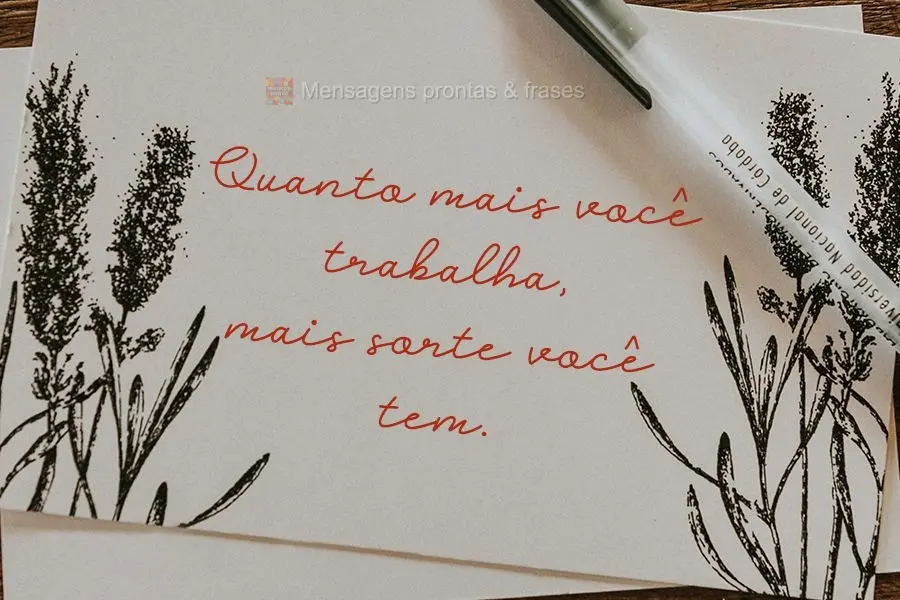 Mensagens prontas & frases
Quanto mais você
trabalha,
mais sorte você
tem.
versidad Nacional de Córdoba